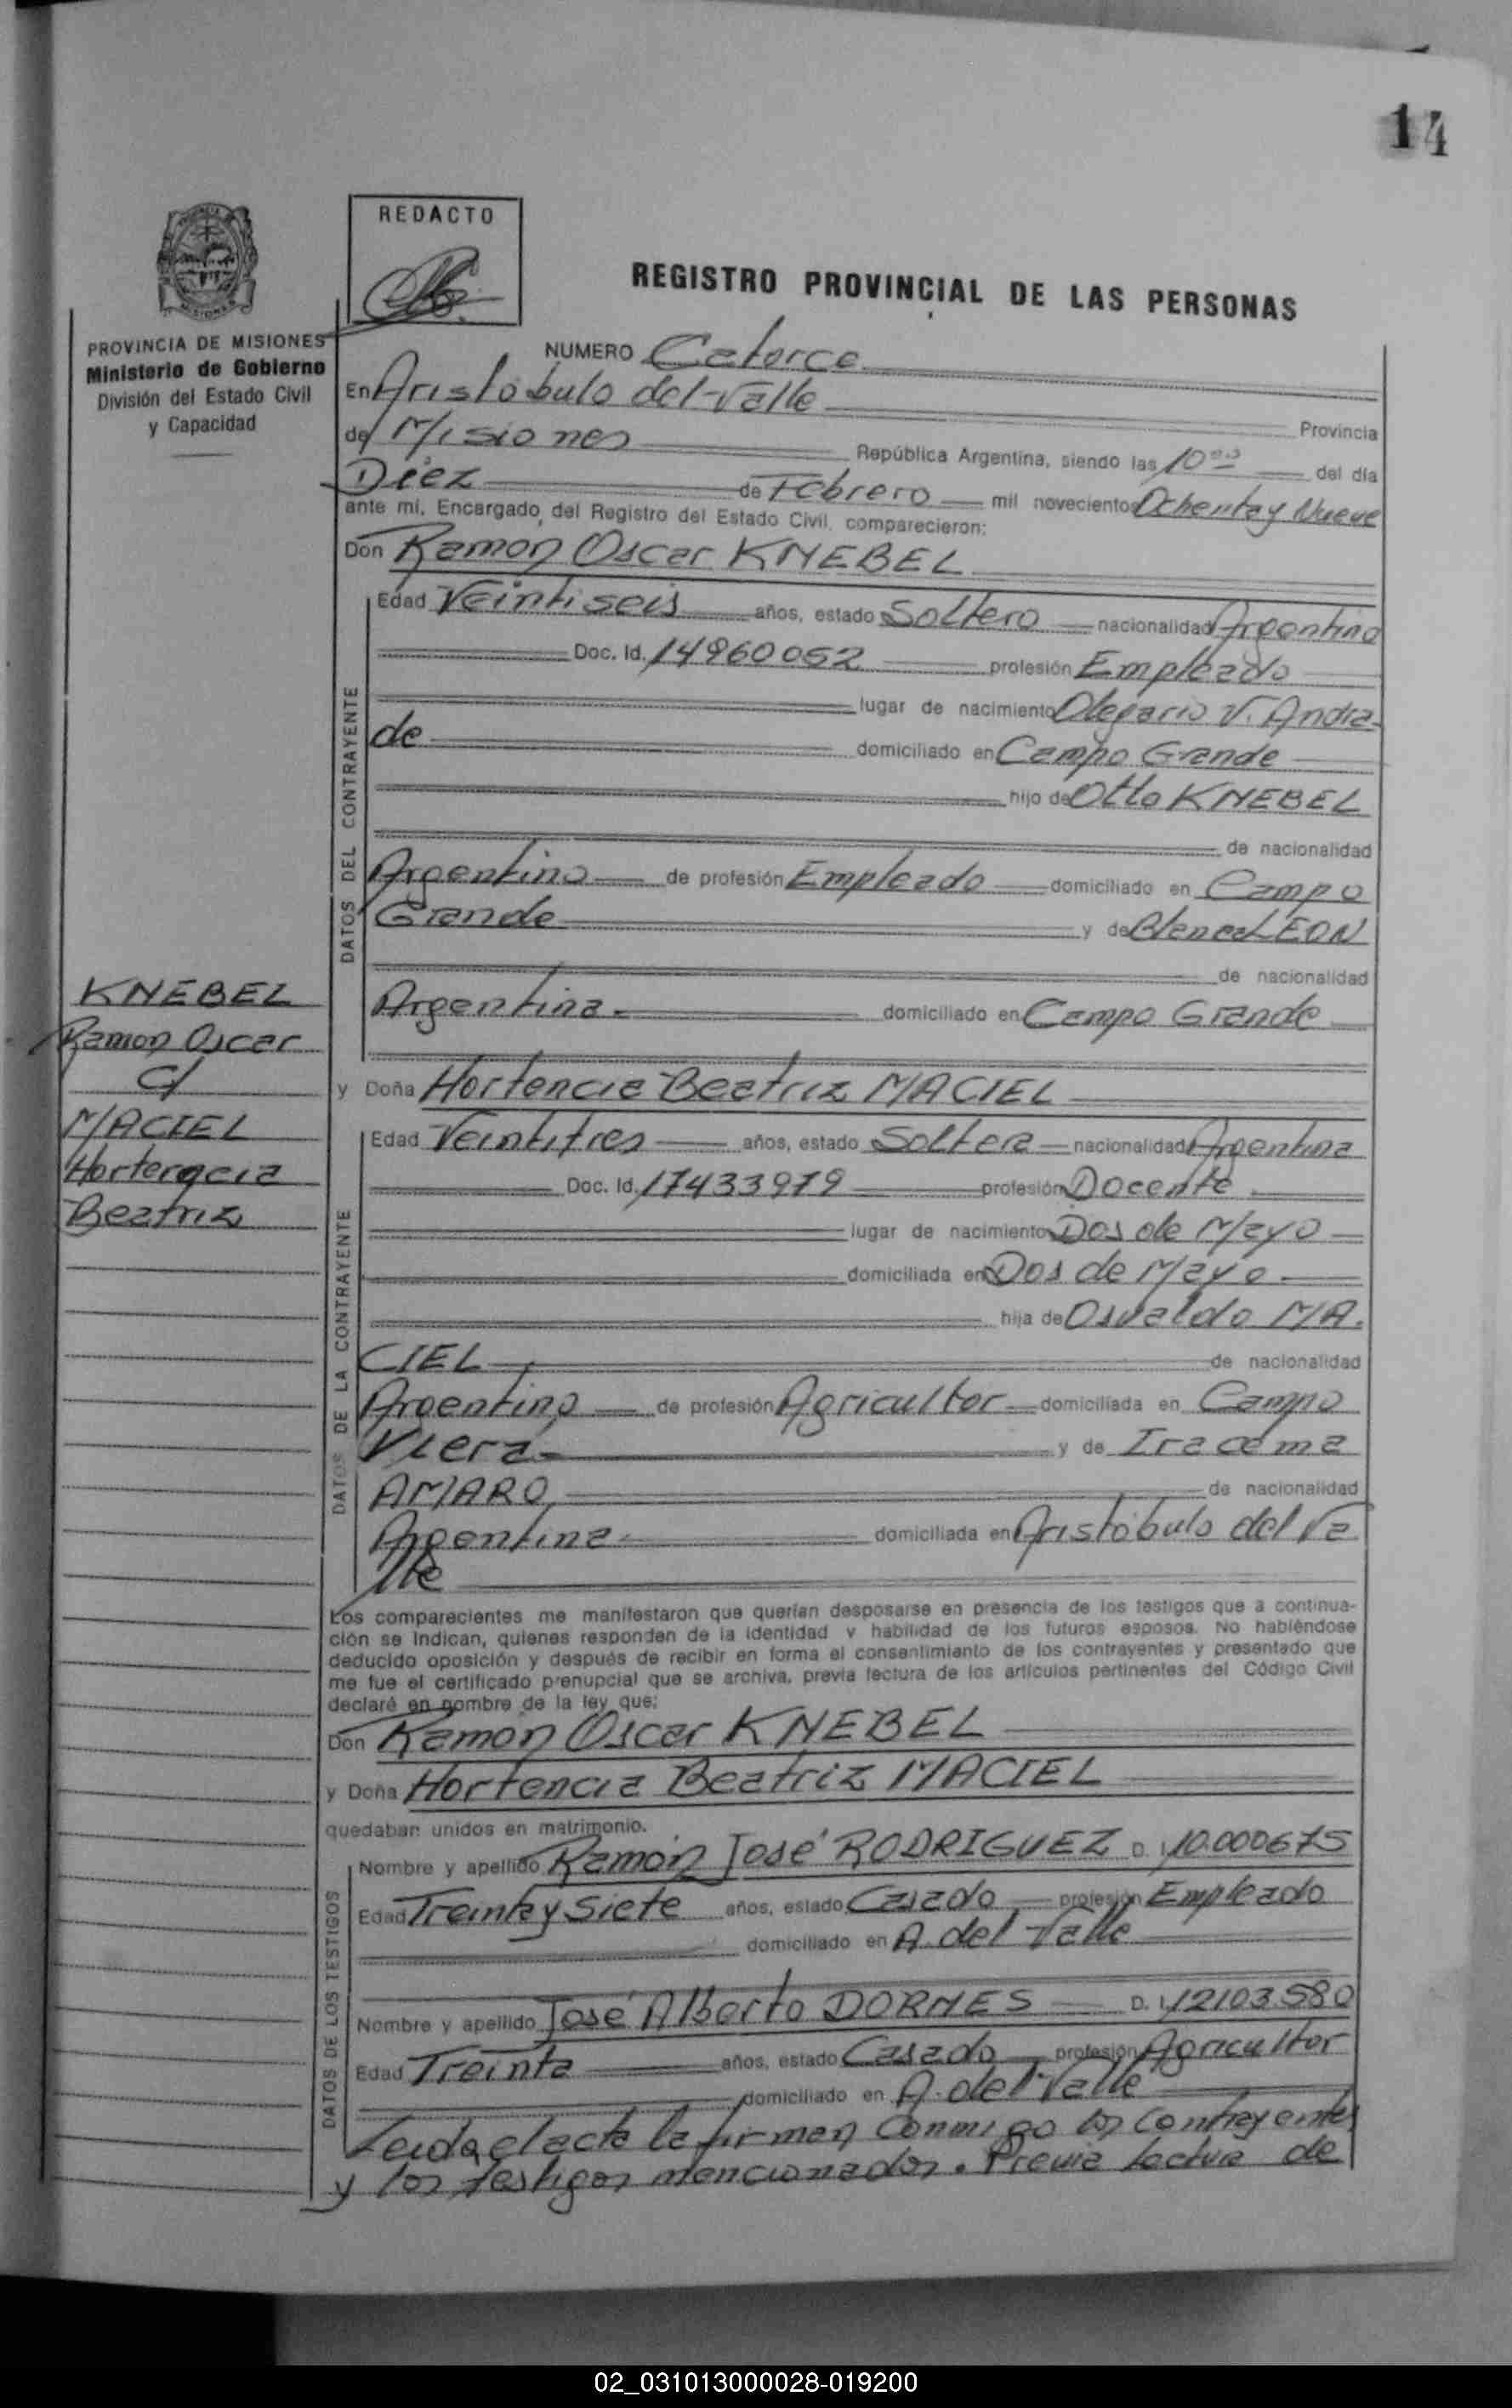 14
REDACTO
REGISTRO PROVINCIAL DE LAS PERSONAS
PROVINCIA DE MISIONES
Ministerio de Gobierno
División del Estado Civil
y Capacidad
NUMERO Catorce
En Aristóbulo del Valle
Provincia
de Misiones República Argentina, siendo las 10 del día
Diez de Febrero mil novecientos Ochenta y Nueve
ante mí, Encargado del Registro del Estado Civil, comparecieron:
Don Ramon Oscar KNEBEL
DATOS DEL CONTRAYENTE
Edad Veintiseis años, estado Soltero nacionalidad Argentino
Doc. Id. 14960052 profesión Empleado
lugar de nacimiento Olegario V. Andra-
de domiciliado en Campo Grande
hijo de Otto KNEBEL
de nacionalidad
Argentino de profesión Empleado domiciliado en Campo
Grande y de Blanca LEON
de nacionalidad
Argentina domiciliado en Campo Grande
KNEBEL
Ramon Oscar
c/
MACIEL
Hortencia
Beatriz
y Doña Hortencia Beatriz MACIEL
DATOS DE LA CONTRAYENTE
Edad Veintitres años, estado Soltera nacionalidad Argentina
Doc. Id. 17433979 profesión Docente
lugar de nacimiento Dos de Mayo
domiciliada en Dos de Mayo
hija de Osvaldo MA.
CIEL de nacionalidad
Argentino de profesión Agricultor domiciliada en Campo
Viera y de Iracema
AMARO de nacionalidad
Argentina domiciliada en Aristóbulo del Va
lle
Los comparecientes me manifestaron que querían desposarse en presencia de los testigos que a continua-
ción se indican, quienes responden de la identidad y habilidad de los futuros esposos. No habiéndose
deducido oposición y después de recibir en forma el consentimiento de los contrayentes y presentado que
me fue el certificado prenupcial que se archiva, previa lectura de los artículos pertinentes del Código Civil
declaré en nombre de la ley que:
Don Ramon Oscar KNEBEL
y Doña Hortencia Beatriz MACIEL
quedaban unidos en matrimonio.
DATOS DE LOS TESTIGOS
Nombre y apellido Ramón José RODRIGUEZ D. I. 10.000675
Edad Treinta y Siete años, estado Casado profesión Empleado
domiciliado en A. del Valle
Nombre y apellido José Alberto DORNES D. I. 12103.580
Edad Treinta años, estado Casado profesión Agricultor
domiciliado en A. del Valle
Leida el acta la firman conmigo los contrayentes
y los testigos mencionados. Previa lectura de
02_031013000028-019200